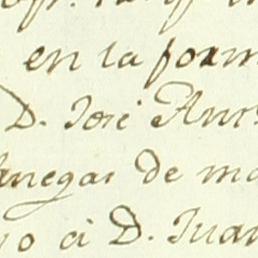 en la form
D. José Anto
anegas de ma
o á D. Juan